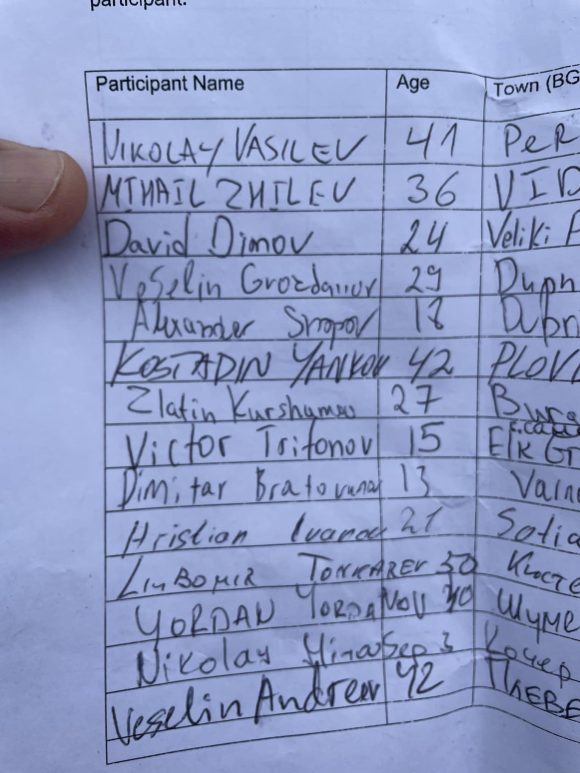 participant.
Participant Name Age Town (BG
NIKOLAY VASILEV 41 PeR
MIHAIL ZHILEV 36 VID
David Dimov 24 Veliki P
Veselin Grozdanov 29 Duph
Alexander Snopov 18 Dubn
KOSTADIN YANKOV 42 PLOV
Zlatin 27
Victor Trifonov 15
Dimitar Bratovanov 13 Varn
Hristian Ivanov 21 Sofia
LIUBOMIR TONKAREV 30 Кюсте
YORDAN YORDANOV 40 Шуме
Nikolay 3 Кочер
Veselin Andreev 42 Плеве